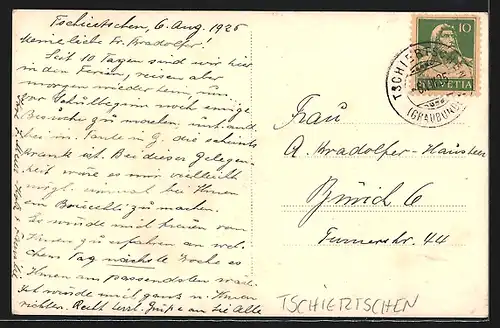 Tschiertschen, 6. Aug. 1925
Meine liebe Fr. Bradolfer!
Seit 10 Tagen sind wir hier
in den Ferien, reisen aber
morgen wieder heim, um
vor Schulbeginn noch einige
Besuche zu machen, u. a. auch
bei m. Tante in G. die schwer
krank ist. Bei dieser Gelegen-
heit wäre es mir vielleicht
mögl. einmal bei Ihnen
ein Besüechli zu machen.
Es würde mich freuen von
Ihnen zu erfahren an wel-
chem Tag nächste Woche es
Ihnen am passendsten wäre.
Ich würde mich ganz n. Ihnen
richten. Recht herzl. Grüße an Sie Alle
Frau
A. Bradolfer-Hausheer
Zürich 6
Turnerstr. 44
10
HELVETIA
TSCHIERTSCHEN
(GRAUBÜNDEN)
TSCHIERTSCHEN